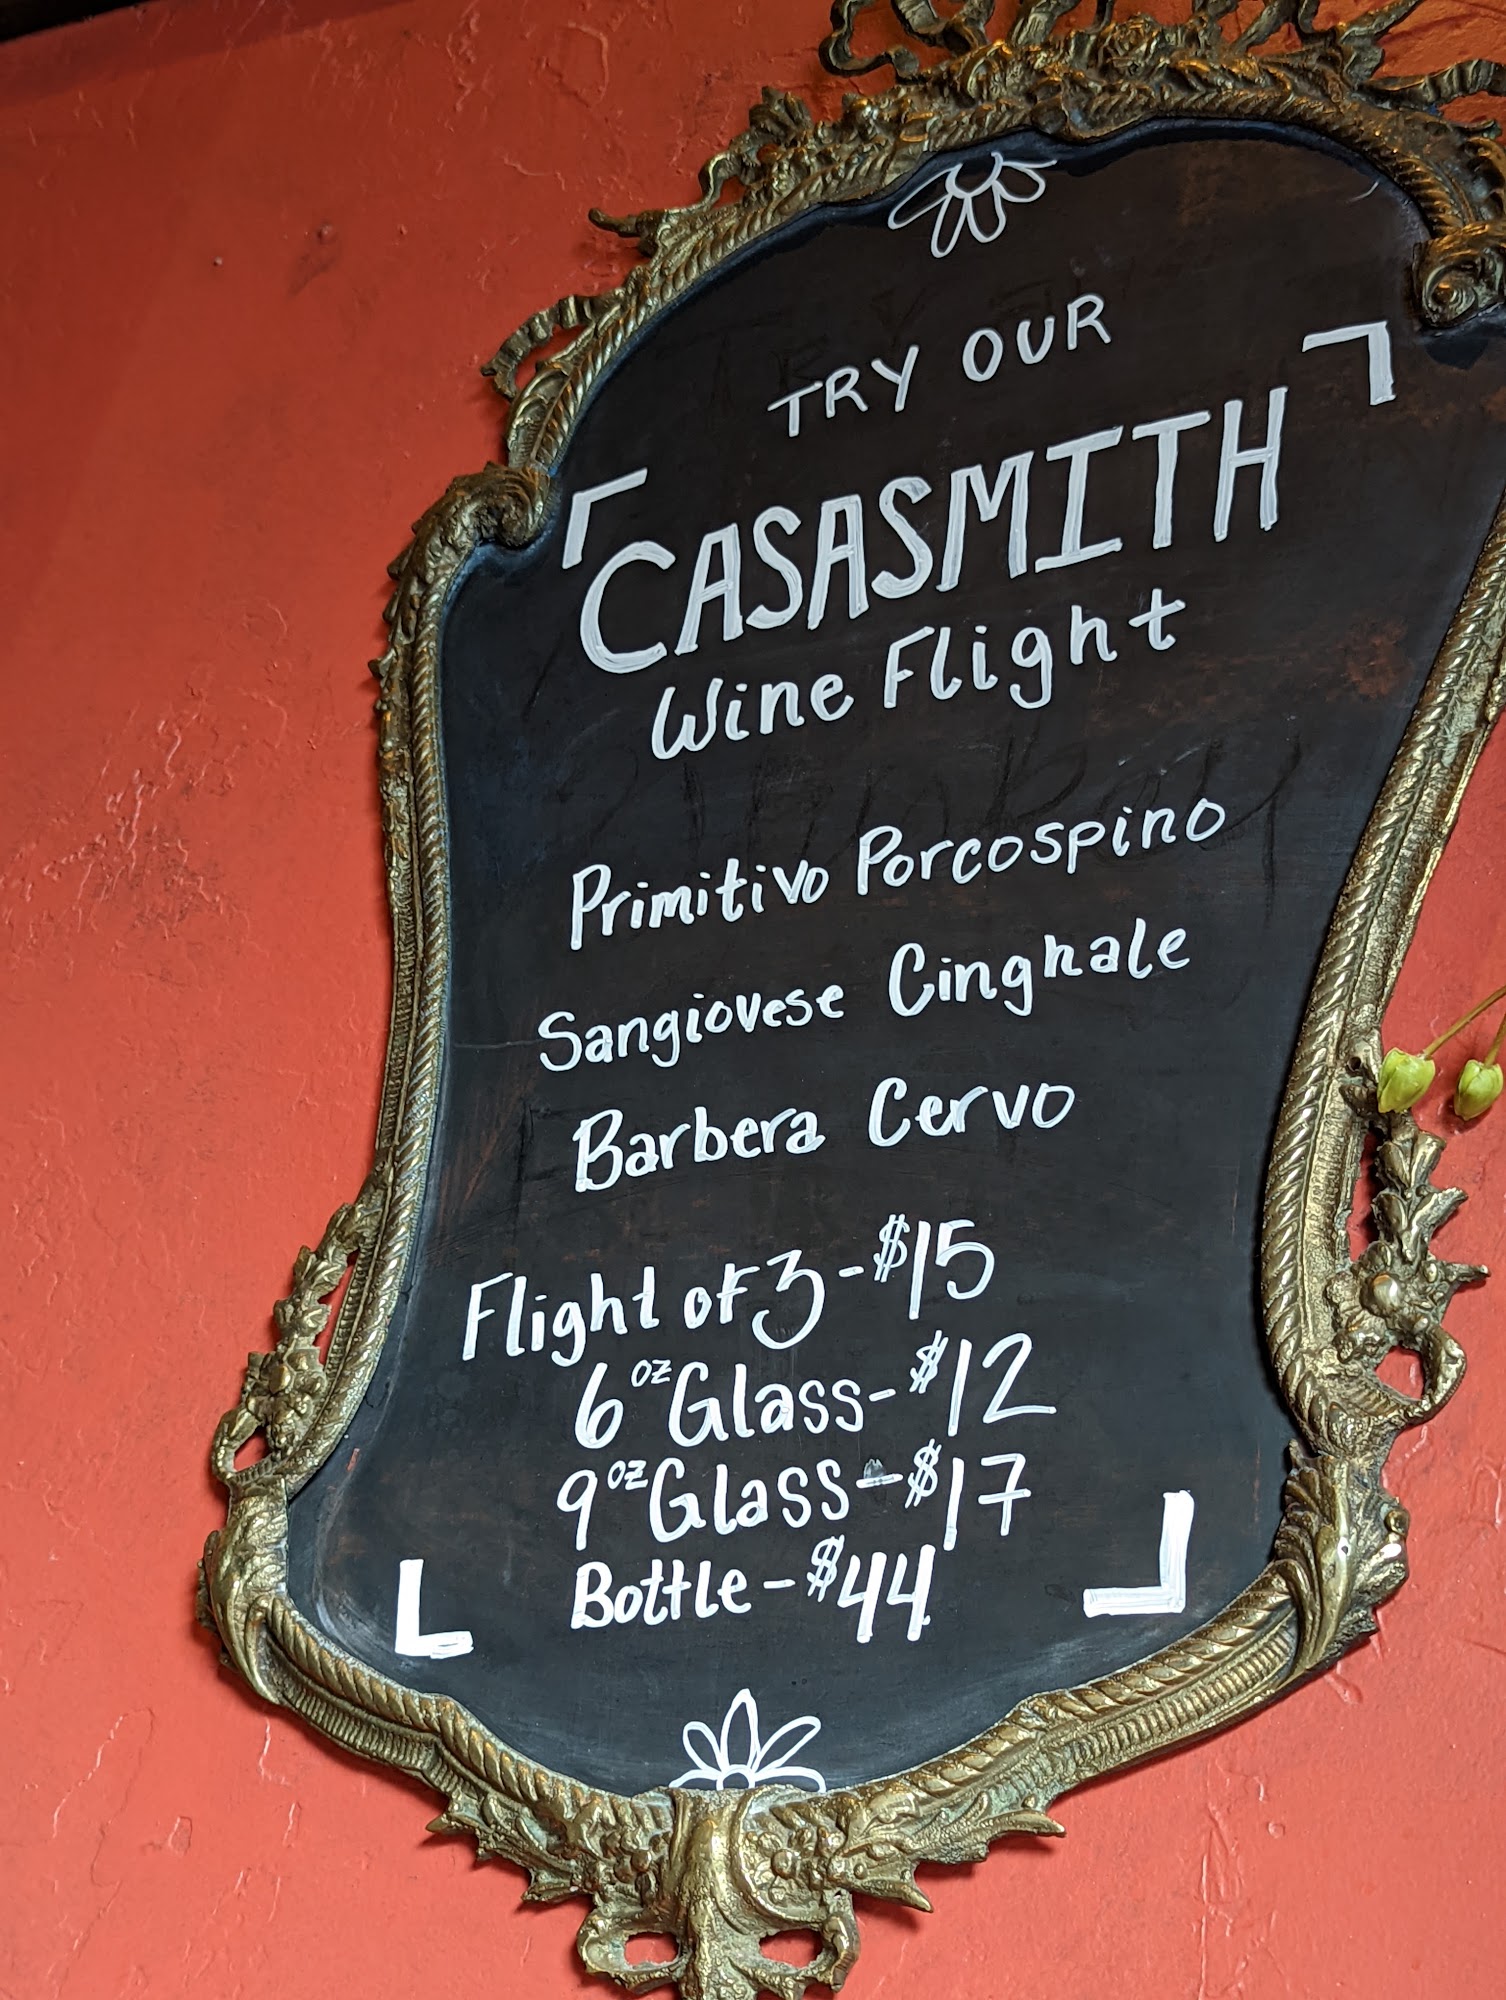 TRY OUR
CASASMITH
Wine Flight
Primitivo Porcospino
Sangiovese Cinghale
Barbera Cervo
Flight of 3 - $15
6 oz Glass - $12
9 oz Glass - $17
Bottle - $44